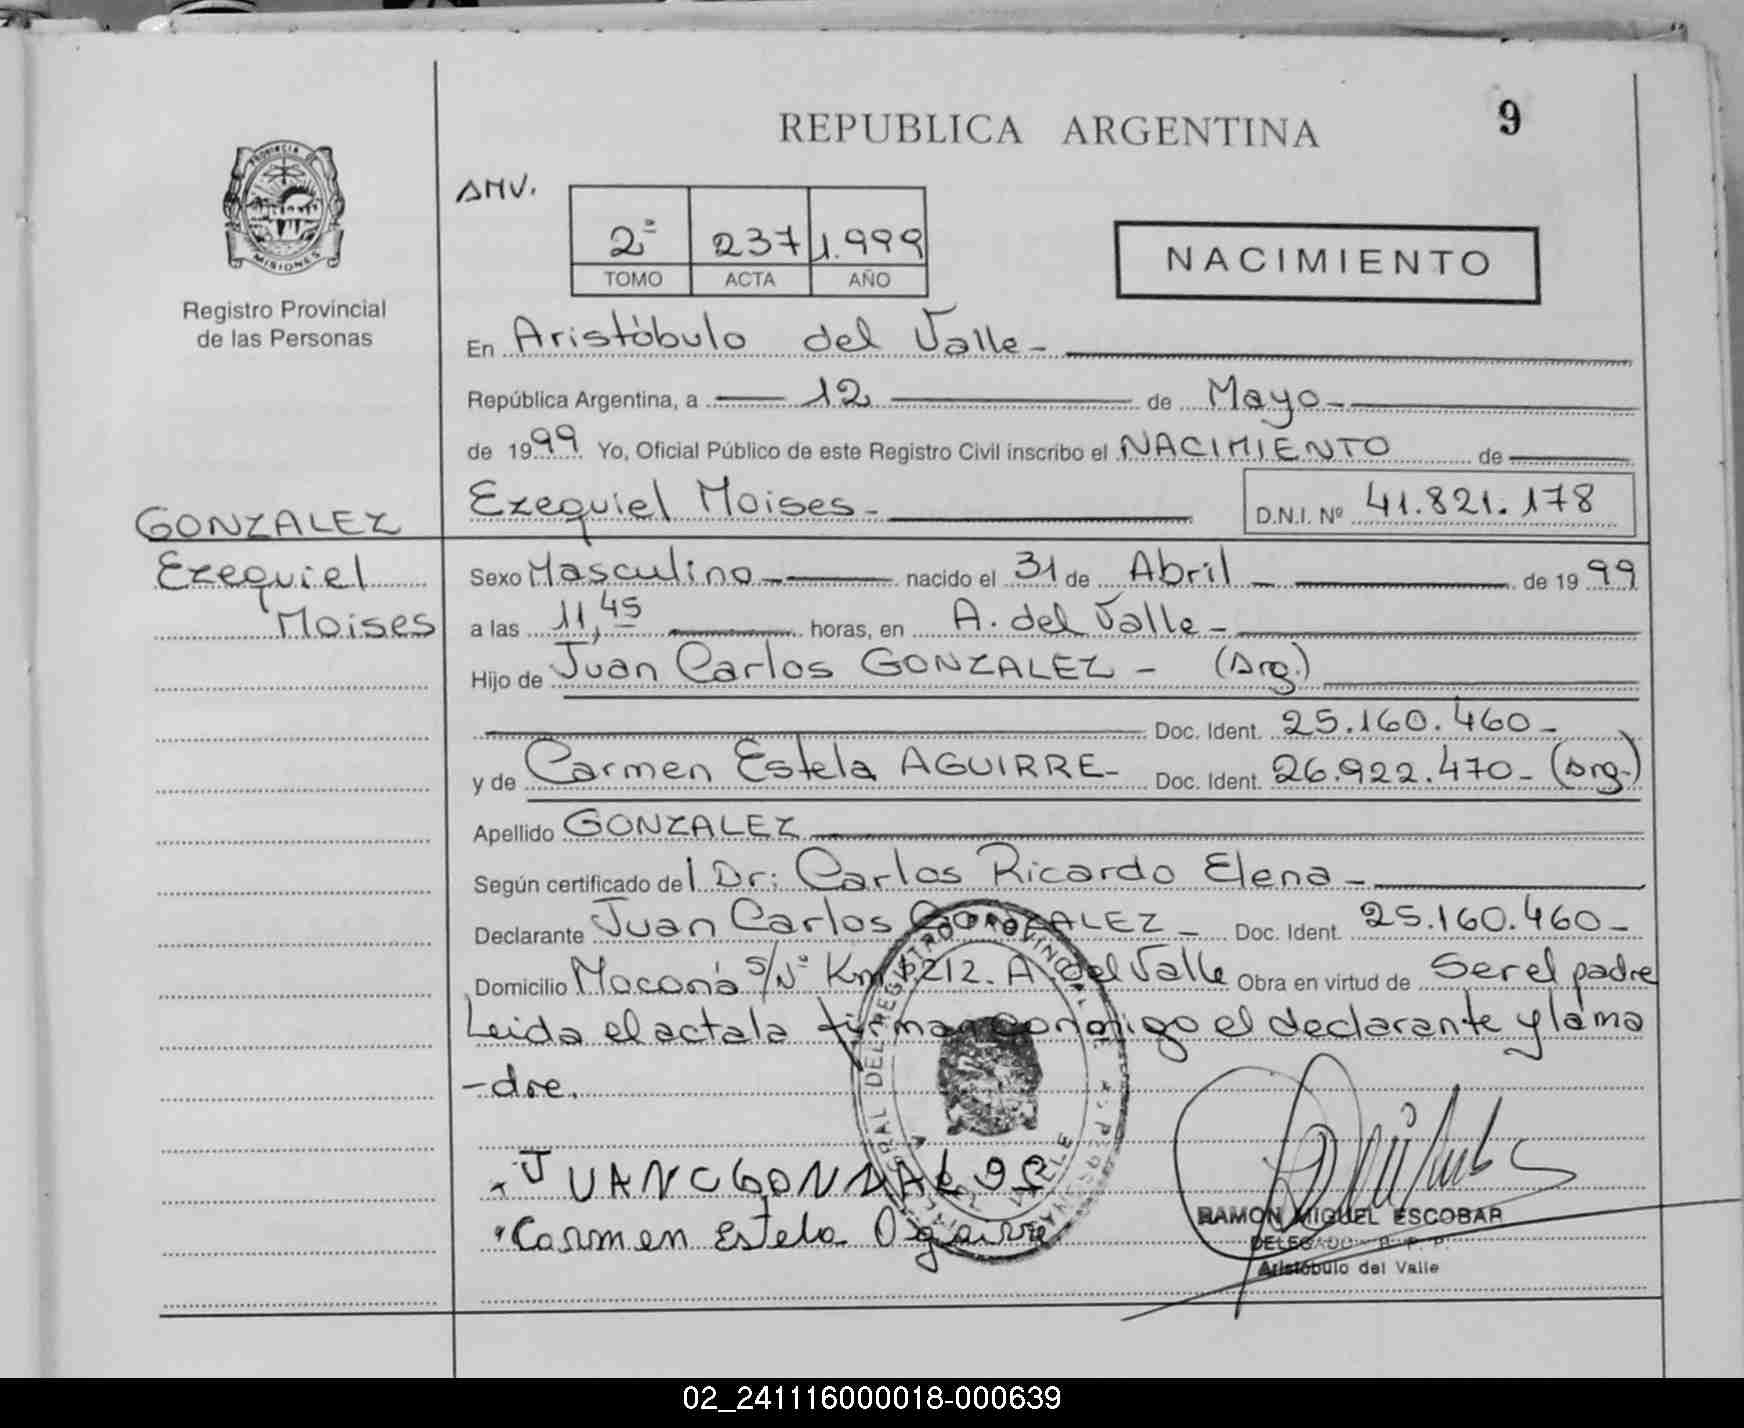 REPUBLICA ARGENTINA
9
PROVINCIA DE
MISIONES
Registro Provincial
de las Personas
AMV.
2ª 237 1.999
TOMO ACTA AÑO
NACIMIENTO
En Aristóbulo del Valle-
República Argentina, a 12 de Mayo-
de 1999 Yo, Oficial Público de este Registro Civil inscribo el NACIMIENTO de
Ezequiel Moises-
D.N.I. Nº 41.821.178
GONZALEZ
Ezequiel
Moises
Sexo Masculino- nacido el 31 de Abril- de 1999
a las 11,45 horas, en A. del Valle-
Hijo de Juan Carlos GONZALEZ - (Arg.)
Doc. Ident. 25.160.460-
y de Carmen Estela AGUIRRE- Doc. Ident. 26.922.470- (Arg.)
Apellido GONZALEZ
Según certificado del Dr: Carlos Ricardo Elena-
Declarante Juan Carlos GONZALEZ- Doc. Ident. 25.160.460-
Domicilio Moconá S/Nº Km 1212. A. del Valle Obra en virtud de Ser el padre
Leida el acta la firman conmigo el declarante y la ma
-dre.
JUAN C GONZAL
Carmen Estela
RAMON MIGUEL ESCOBAR
DELEGADO - R. P. P.
Aristóbulo del Valle
DEL REGISTRO PROVINCIAL DE
02_241116000018-000639